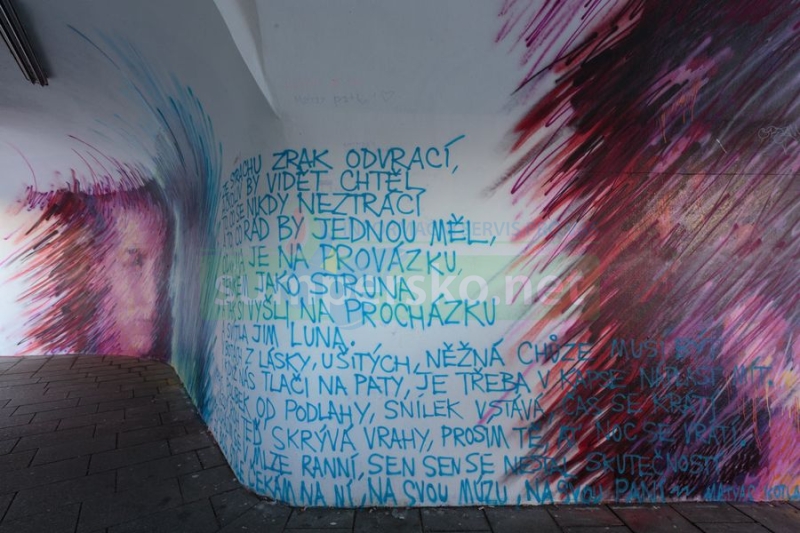 ZRAK ODVRACÍ,
BY VIDĚT CHTĚL
SE NIKDY NEZTRACÍ
RÁD BY JEDNOU MĚL,
JE NA PROVÁZKU,
JAKO STRUNA
VYŠLI NA PROCHÁZKU
JIM LUNA.
Z LÁSKY, UŠITÝCH, NĚŽNÁ CHŮZE MUSÍ BÝT
NÁS TLAČÍ NA PATY, JE TŘEBA V KAPSE NÁPLAST MÍT,
OD PODLAHY, SNÍLEK VSTÁVÁ, ČAS SE KRÁTÍ
SKRÝVÁ VRAHY, PROSÍM TĚ, AŤ NOC SE VRÁTÍ,
MLZE RANNÍ, SEN SEN SE NESTAL SKUTEČNOSTÍ
ČEKÁM NA NÍ, NA SVOU MÚZU, NA SVOU PANÍ
sumpersko.net